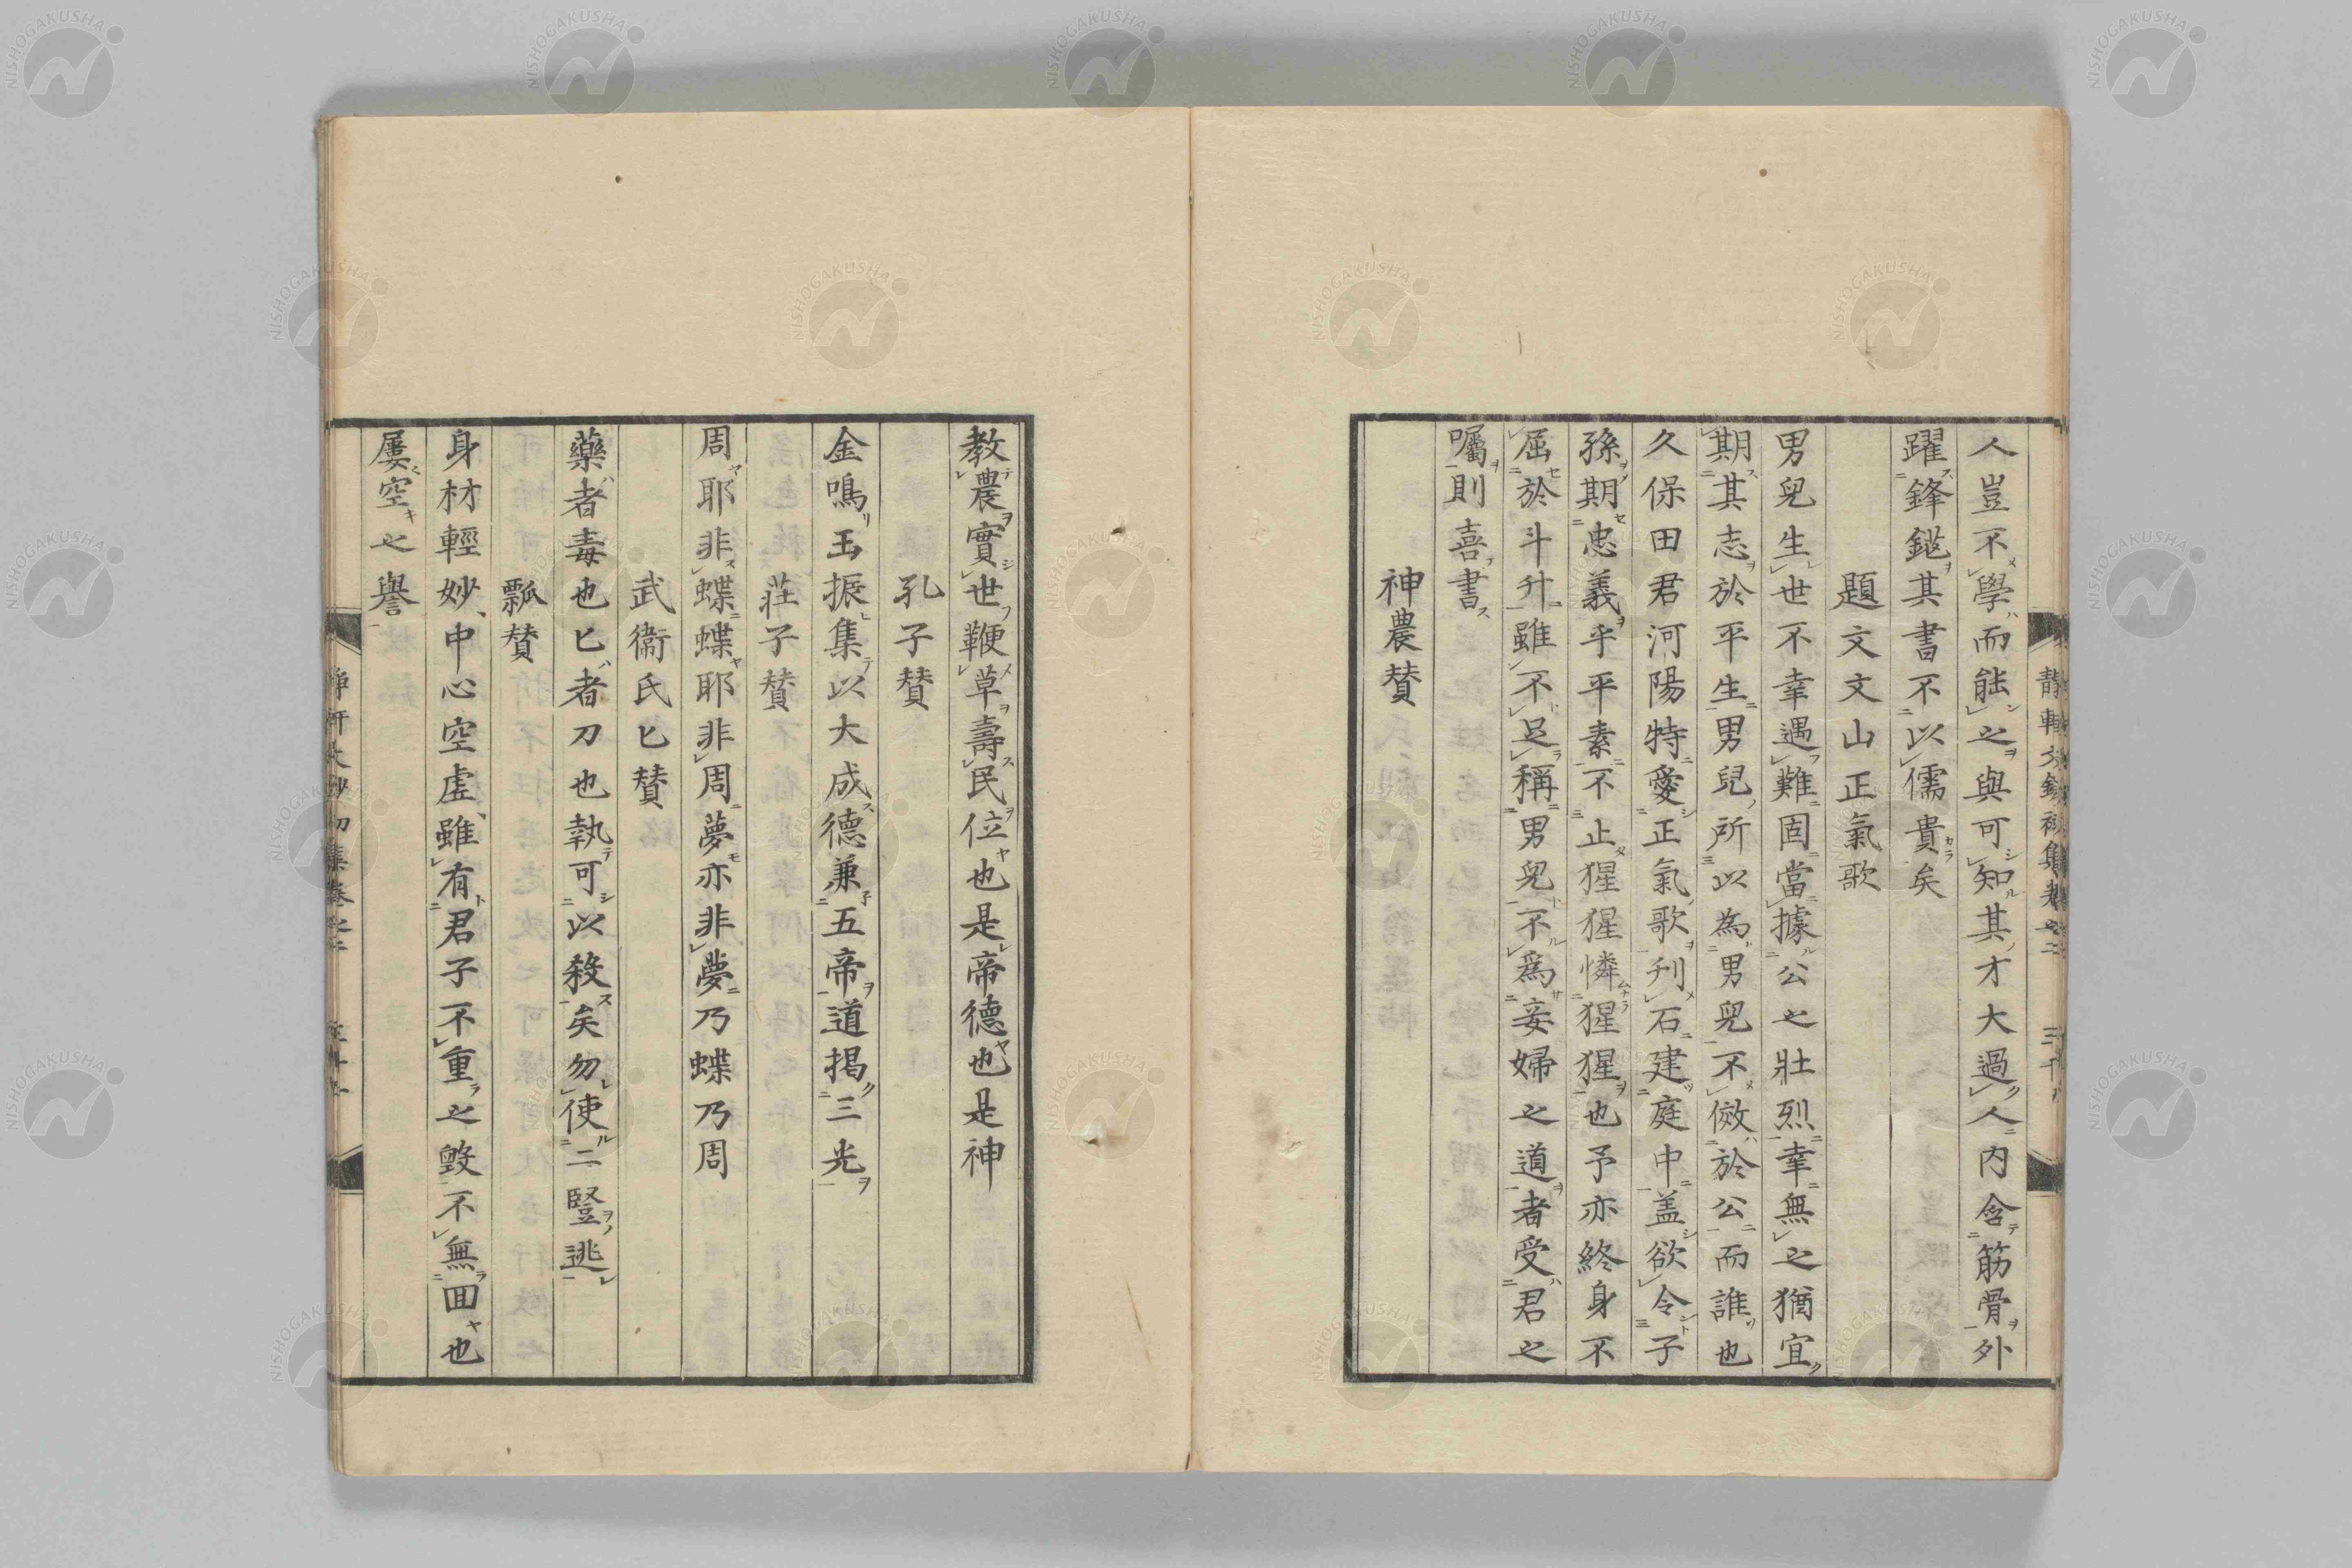 人豈不學而能之與可知其才大過人內含筋骨外
躍鋒鋩其書不以儒貴矣
題文文山正氣歌
男兒生世不幸遇難固當據公之壯烈幸無之猶宜
期其志於平生男兒所以為男兒不倣於公而誰也
久保田君河陽特愛正氣歌刋石建庭中盖欲令子
孫期忠義乎平素不止猩猩憐猩猩也予亦終身不
屈於斗升雖不足稱男兒不爲妾婦之道者受君之
囑則喜書
神農賛
教農實世鞭草壽民位也是帝德也是神
孔子賛
金鳴玉振集以大成德兼五帝道揭三光
莊子賛
周耶非蝶蝶耶非周夢亦非夢乃蝶乃周
武衞氏匕賛
藥者毒也匕者刀也執可以殺矣勿使二豎逃
瓢賛
身材輕妙中心空虛雖有君子不重之毀不無回也
屢空之譽
NISHOGAKUSHA